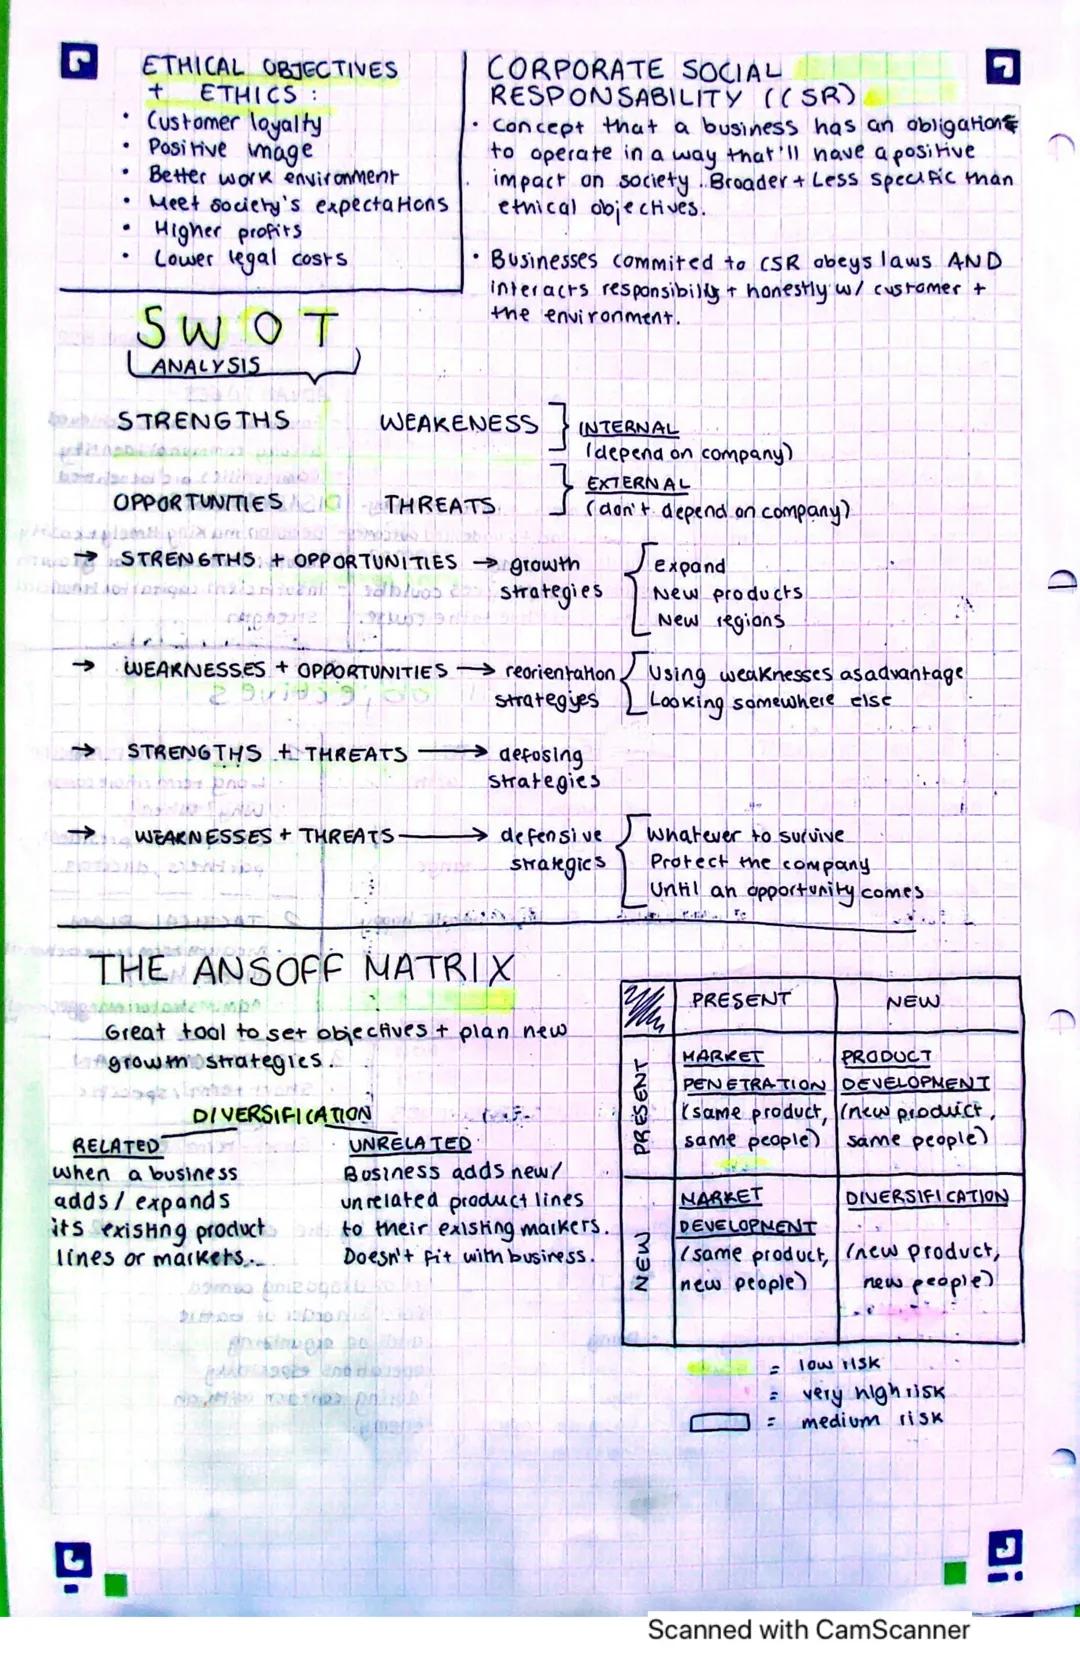 ETHICAL OBJECTIVES
+ ETHICS :
• Customer loyalty
• Positive image
• Better work environment
• Meet society's expectations
• Higher profits
• Lower legal costs
CORPORATE SOCIAL
RESPONSABILITY ((SR)
• Concept that a business has an obligations
to operate in a way that'll have a positive
impact on society. Broader + Less specific than
ethical objectives.
• Businesses commited to CSR obeys laws AND
interacts responsibility + honestly w/ customer +
the environment.
SWOT
ANALYSIS
STRENGTHS WEAKENESS } INTERNAL
(depend on company)
OPPORTUNITIES THREATS } EXTERNAL
(don't depend on company)
→ STRENGTHS + OPPORTUNITIES → growth
strategies
Expand
New products
New regions
→ WEAKNESSES + OPPORTUNITIES → reorientation
strategyes
Using weaknesses as advantage
Looking somewhere else
→ STRENGTHS + THREATS → defosing
strategies
→ WEAKNESSES + THREATS → defensive
strategies
Whatever to survive
Protect the company
Until an opportunity comes
THE ANSOFF MATRIX
Great tool to set objectives + plan new
growth strategies.
DIVERSIFICATION
RELATED
When a business
adds / expands
its existing product
lines or markets...
UNRELATED
Business adds new/
unrelated product lines
to their existing markers.
Doesn't fit with business.
PRESENT NEW
PRESENT
MARKET
PENETRATION
(same product,
same people)
PRODUCT
DEVELOPMENT
(new product,
same people)
NEW
MARKET
DEVELOPMENT
(same product,
new people)
DIVERSIFICATION
(new product,
new people)
= low risk
= very high risk
= medium risk
Scanned with CamScanner